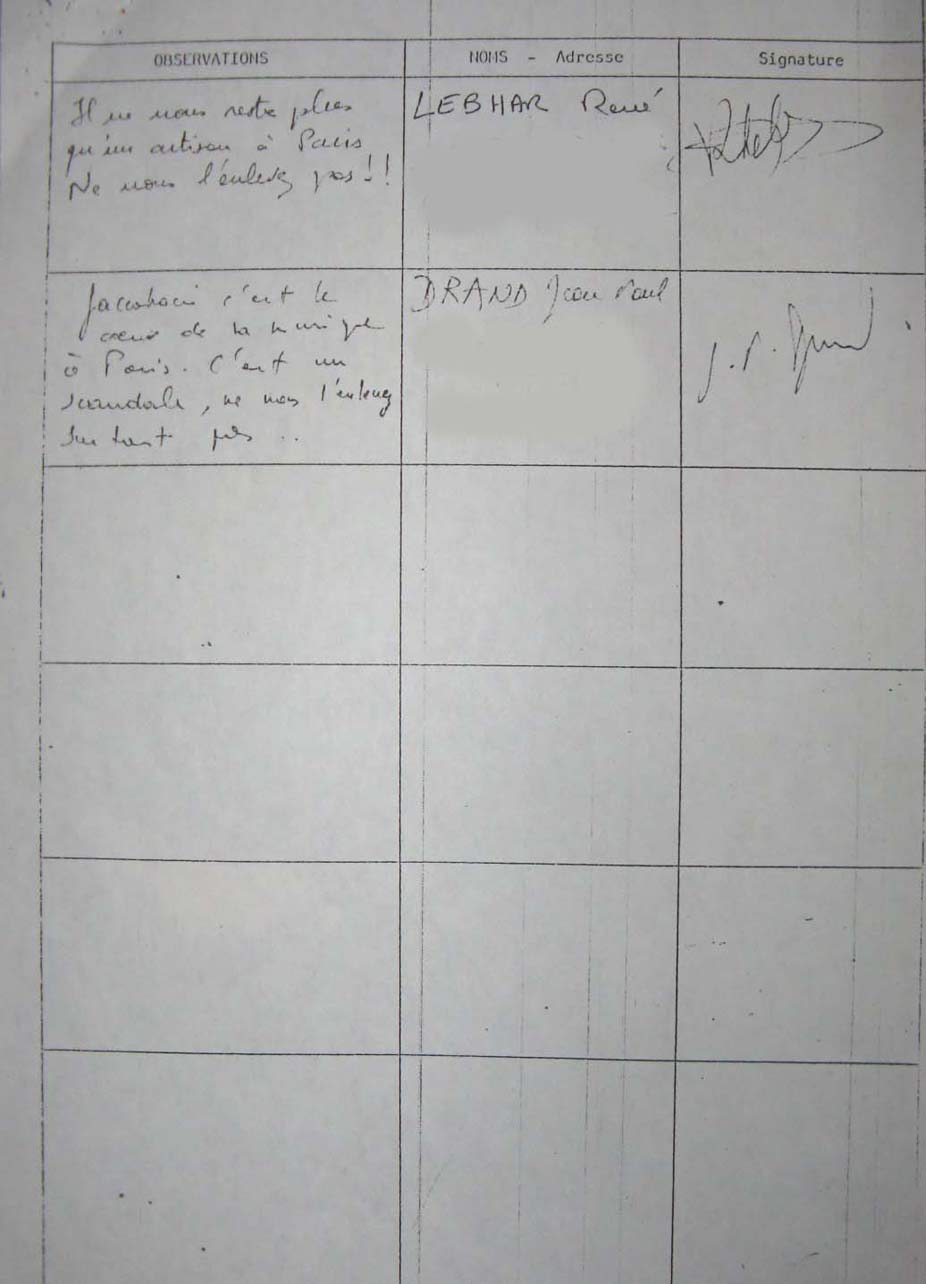 OBSERVATIONS
NOMS - Adresse
Signature
Il ne nous reste plus
qu'un artisan à Paris
Ne nous l'enlevez pas!!
LEBHAR René
c'est le
coeur de la musique
à Paris. C'est un
scandale, ne nous l'enlevez
surtout pas ..
DRAND Jean Paul
J. P.